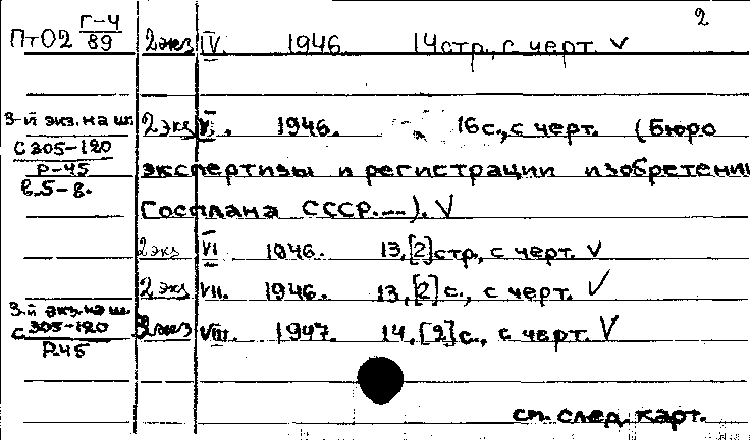 2
ПтО2 Г-4/89 2экз IV. 1946 14стр., с черт. V
3-й экз. на ш. 2экз V. 1946. 16с., с черт. (Бюро
С 305-120
Р-45 экспертизы и регистрации изобретений
в. 5-8.
Госплана СССР.—). V
2экз VI 1946. 13,[2]стр., с черт. V
2экз VII. 1946. 13,[2]с., с черт. V
3-й экз. на ш.
С 305-120 2экз VIII. 1947. 14,[2]с., с черт. V
Р45
см. след. карт.